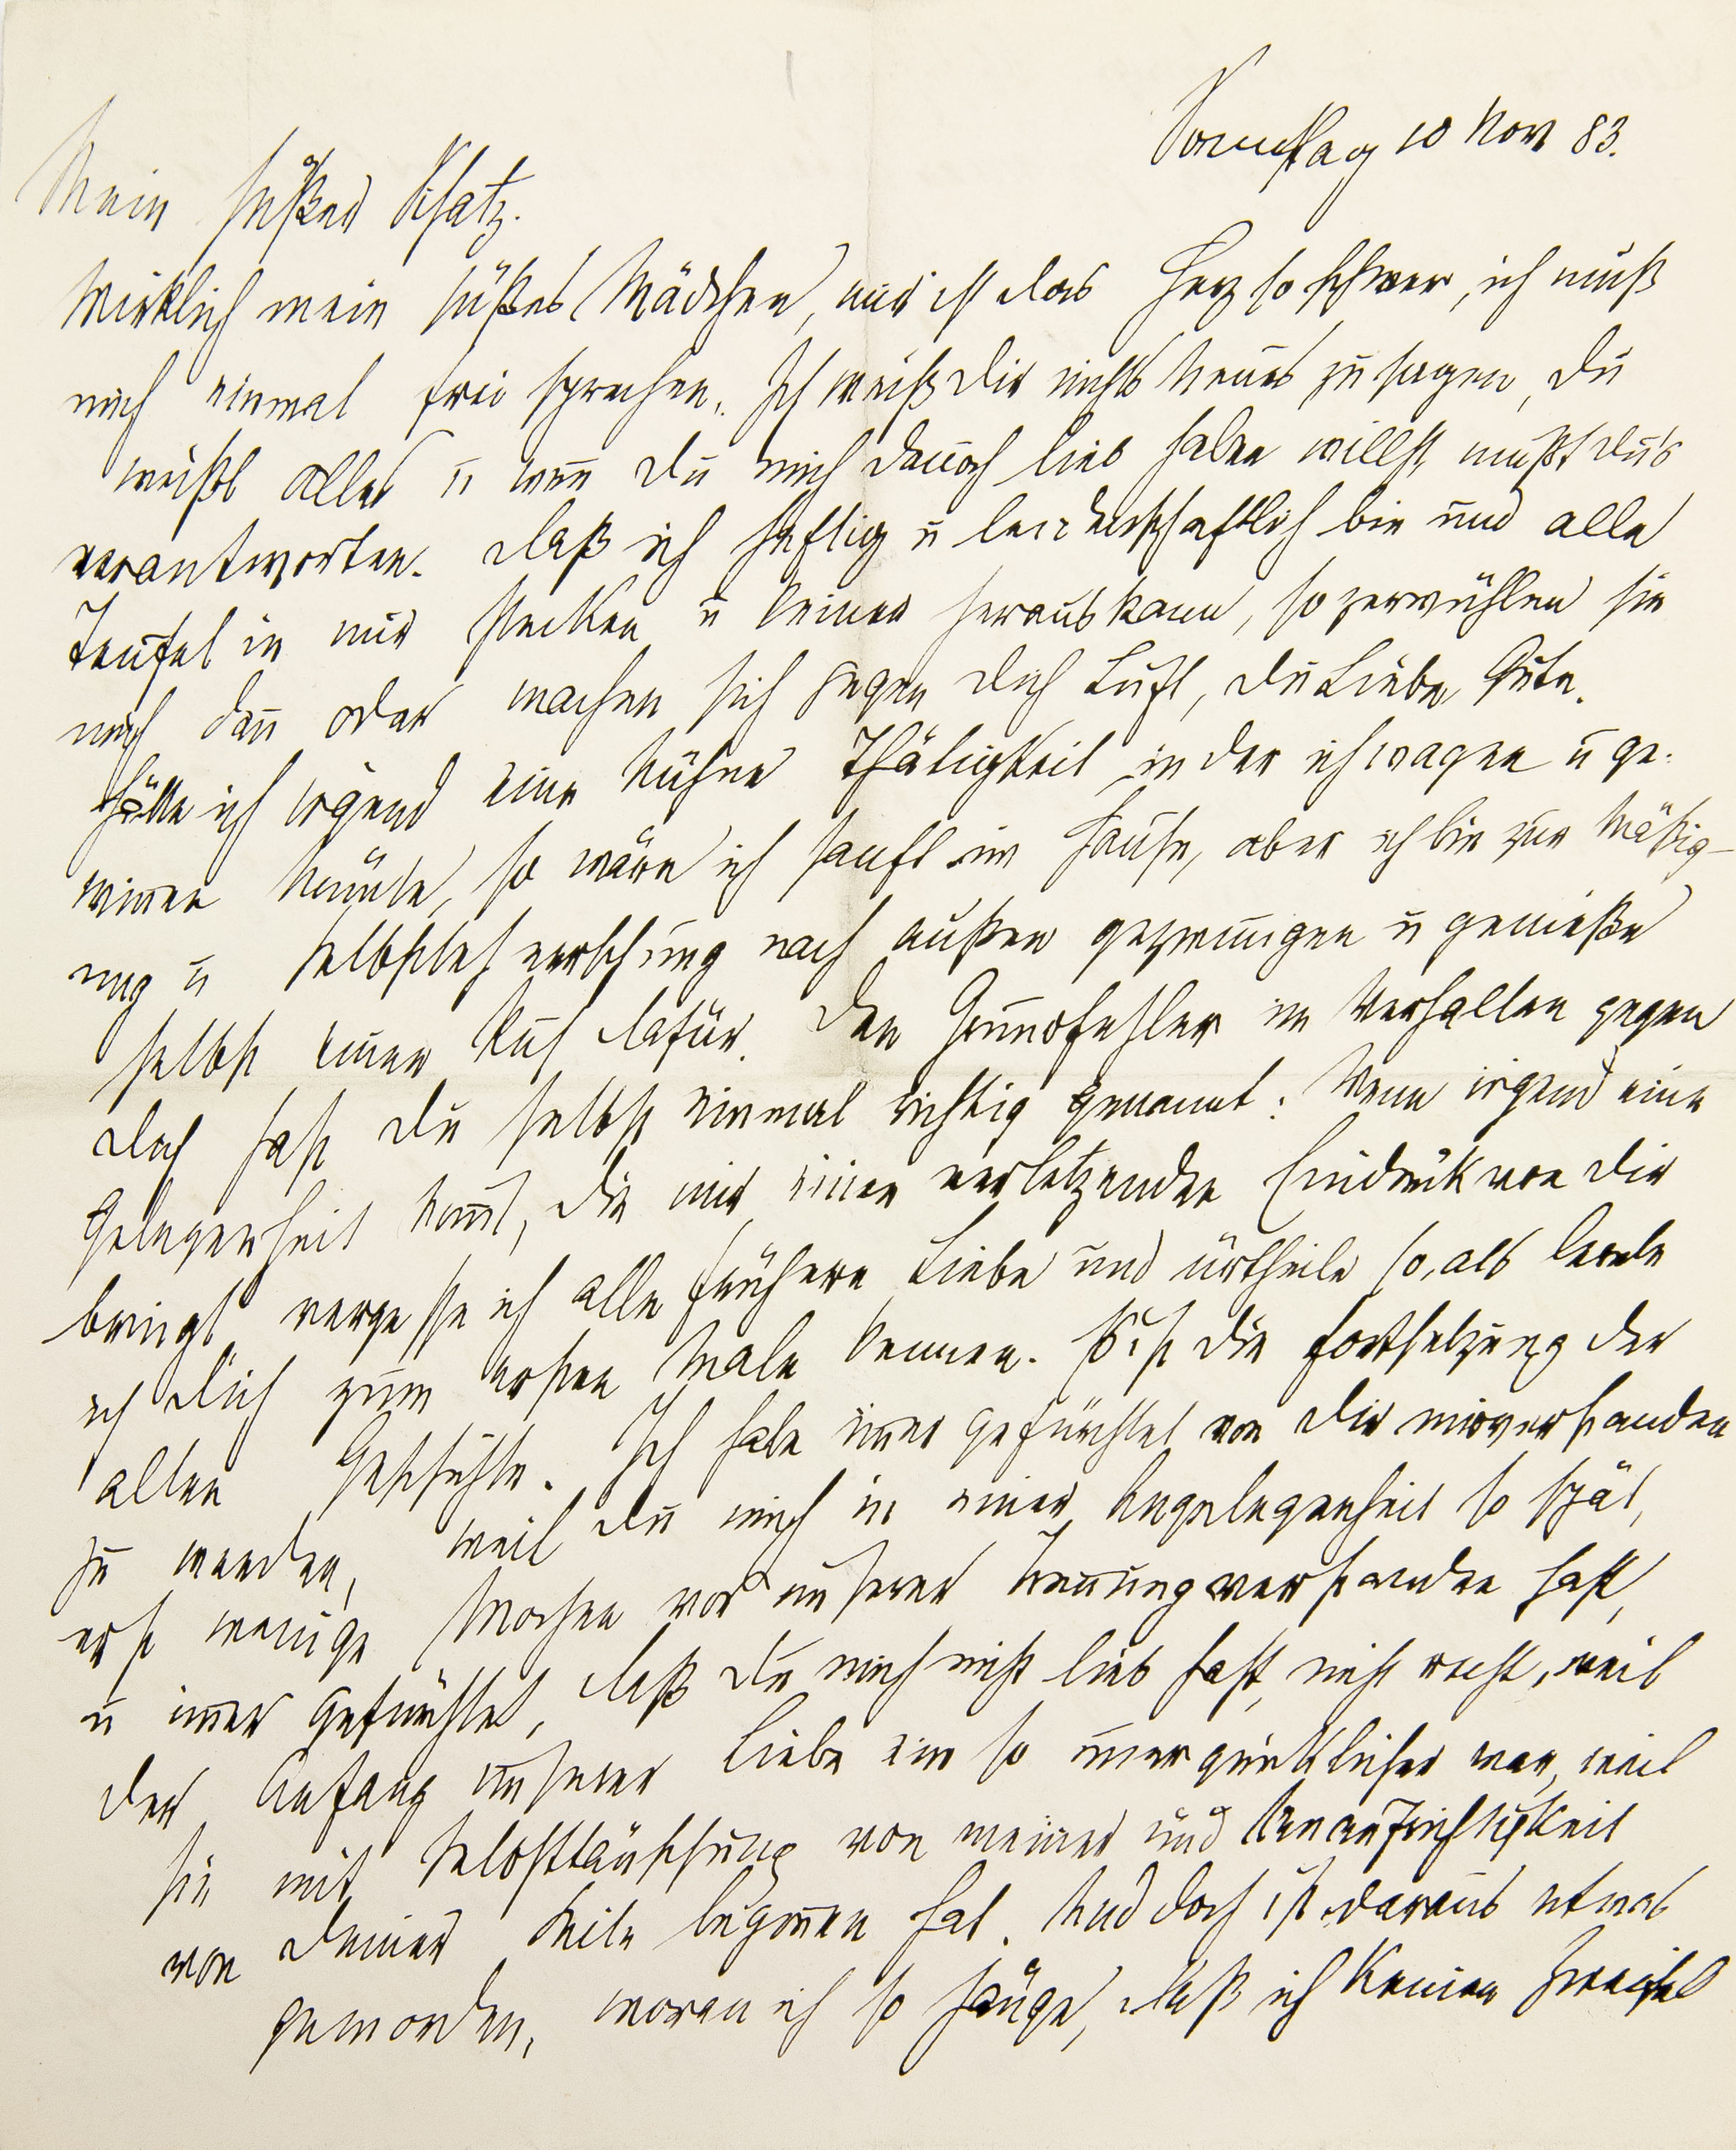 Sonnstag 10 Nov 83.
Mein süßer Schatz.
Wirklich mein süßes Mädchen, mir ist das Herz so schwer, ich muß
mich einmal frei sprechen. Ich weiß Dir nichts Neues zu sagen, Du
weißt alles u wenn Du mich dennoch lieb haben willst, mußt Du's
verantworten. Daß ich heftig u leidenschaftlich bin und alle
Teufel in mir stecken u keiner heraus kann, so zerwühlen sie
mich dann oder machen sich gegen Dich Luft, Du Liebe, Gute.
Hätte ich irgend eine kühne Thätigkeit in der ich wagen u ge-
winnen könnte, so wäre ich sanft im Hause, aber ich bin zur Mäßig-
ung u Selbstbeherrschung nach außen gezwungen u genieße
selbst einen Ruf dafür. Den Grundfehler im Verhalten gegen
Dich hast Du selbst einmal richtig genannt: Wenn irgend eine
Gelegenheit kommt, die mir einen verletzenden Eindruck von Dir
bringt, vergesse ich alle frühere Liebe und urtheile so, als lernte
ich Dich zum ersten Male kennen. Es ist die Fortsetzung der
alten Geschichte. Ich habe immer gefürchtet von Dir misverstanden
zu werden, weil Du mich in einer Angelegenheit so spät,
erst wenige Wochen vor unserer Trennung verstanden hast,
u immer gefürchtet, daß Du mich nicht lieb hast, nicht recht, weil
der Anfang unserer Liebe ein so unerquicklicher war, weil
sie mit Selbsttäuschung von meiner und Unaufrichtigkeit
von Deiner Seite begonnen hat. Und doch ist daraus etwas
geworden, woran ich so hänge, daß ich keinen Zweifel